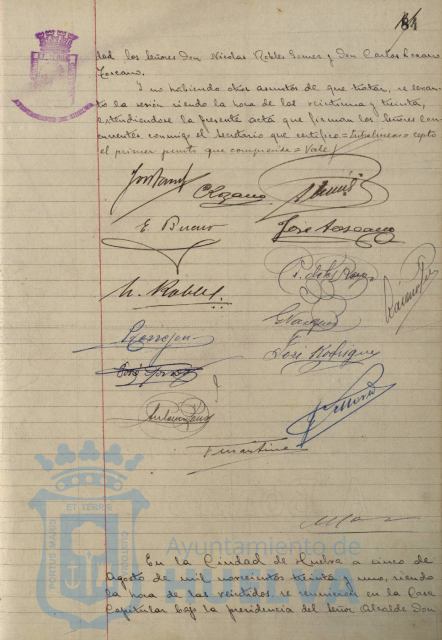 81
dad los señores Don Nicolas Robles Gomez y Don Carlos Lozano
Toscano.
Y no habiendo otros asuntos de que tratar, se levan-
to la sesión siendo la hora de las veintiuna y treinta,
extendiendose la presente acta que firman los señores con-
currentes conmigo el Secretario que certifico = Entrelineas = cepto
el primer punto que comprende = Vale
C Lozano
E. Bueno
José Toscano
N. Robles
P. de la
E Vazquez
José Rodriguez
F. Martinez
PORTUS MARIS
ET TERRÆ
CUSTODIA
Ayuntamiento de
HUELVA
En la Ciudad de Huelva a cinco de
Agosto de mil novecientos treinta y uno, siendo
la hora de las veintidos, se reunieron en la Casa
Capitular bajo la presidencia del Señor Alcalde Don